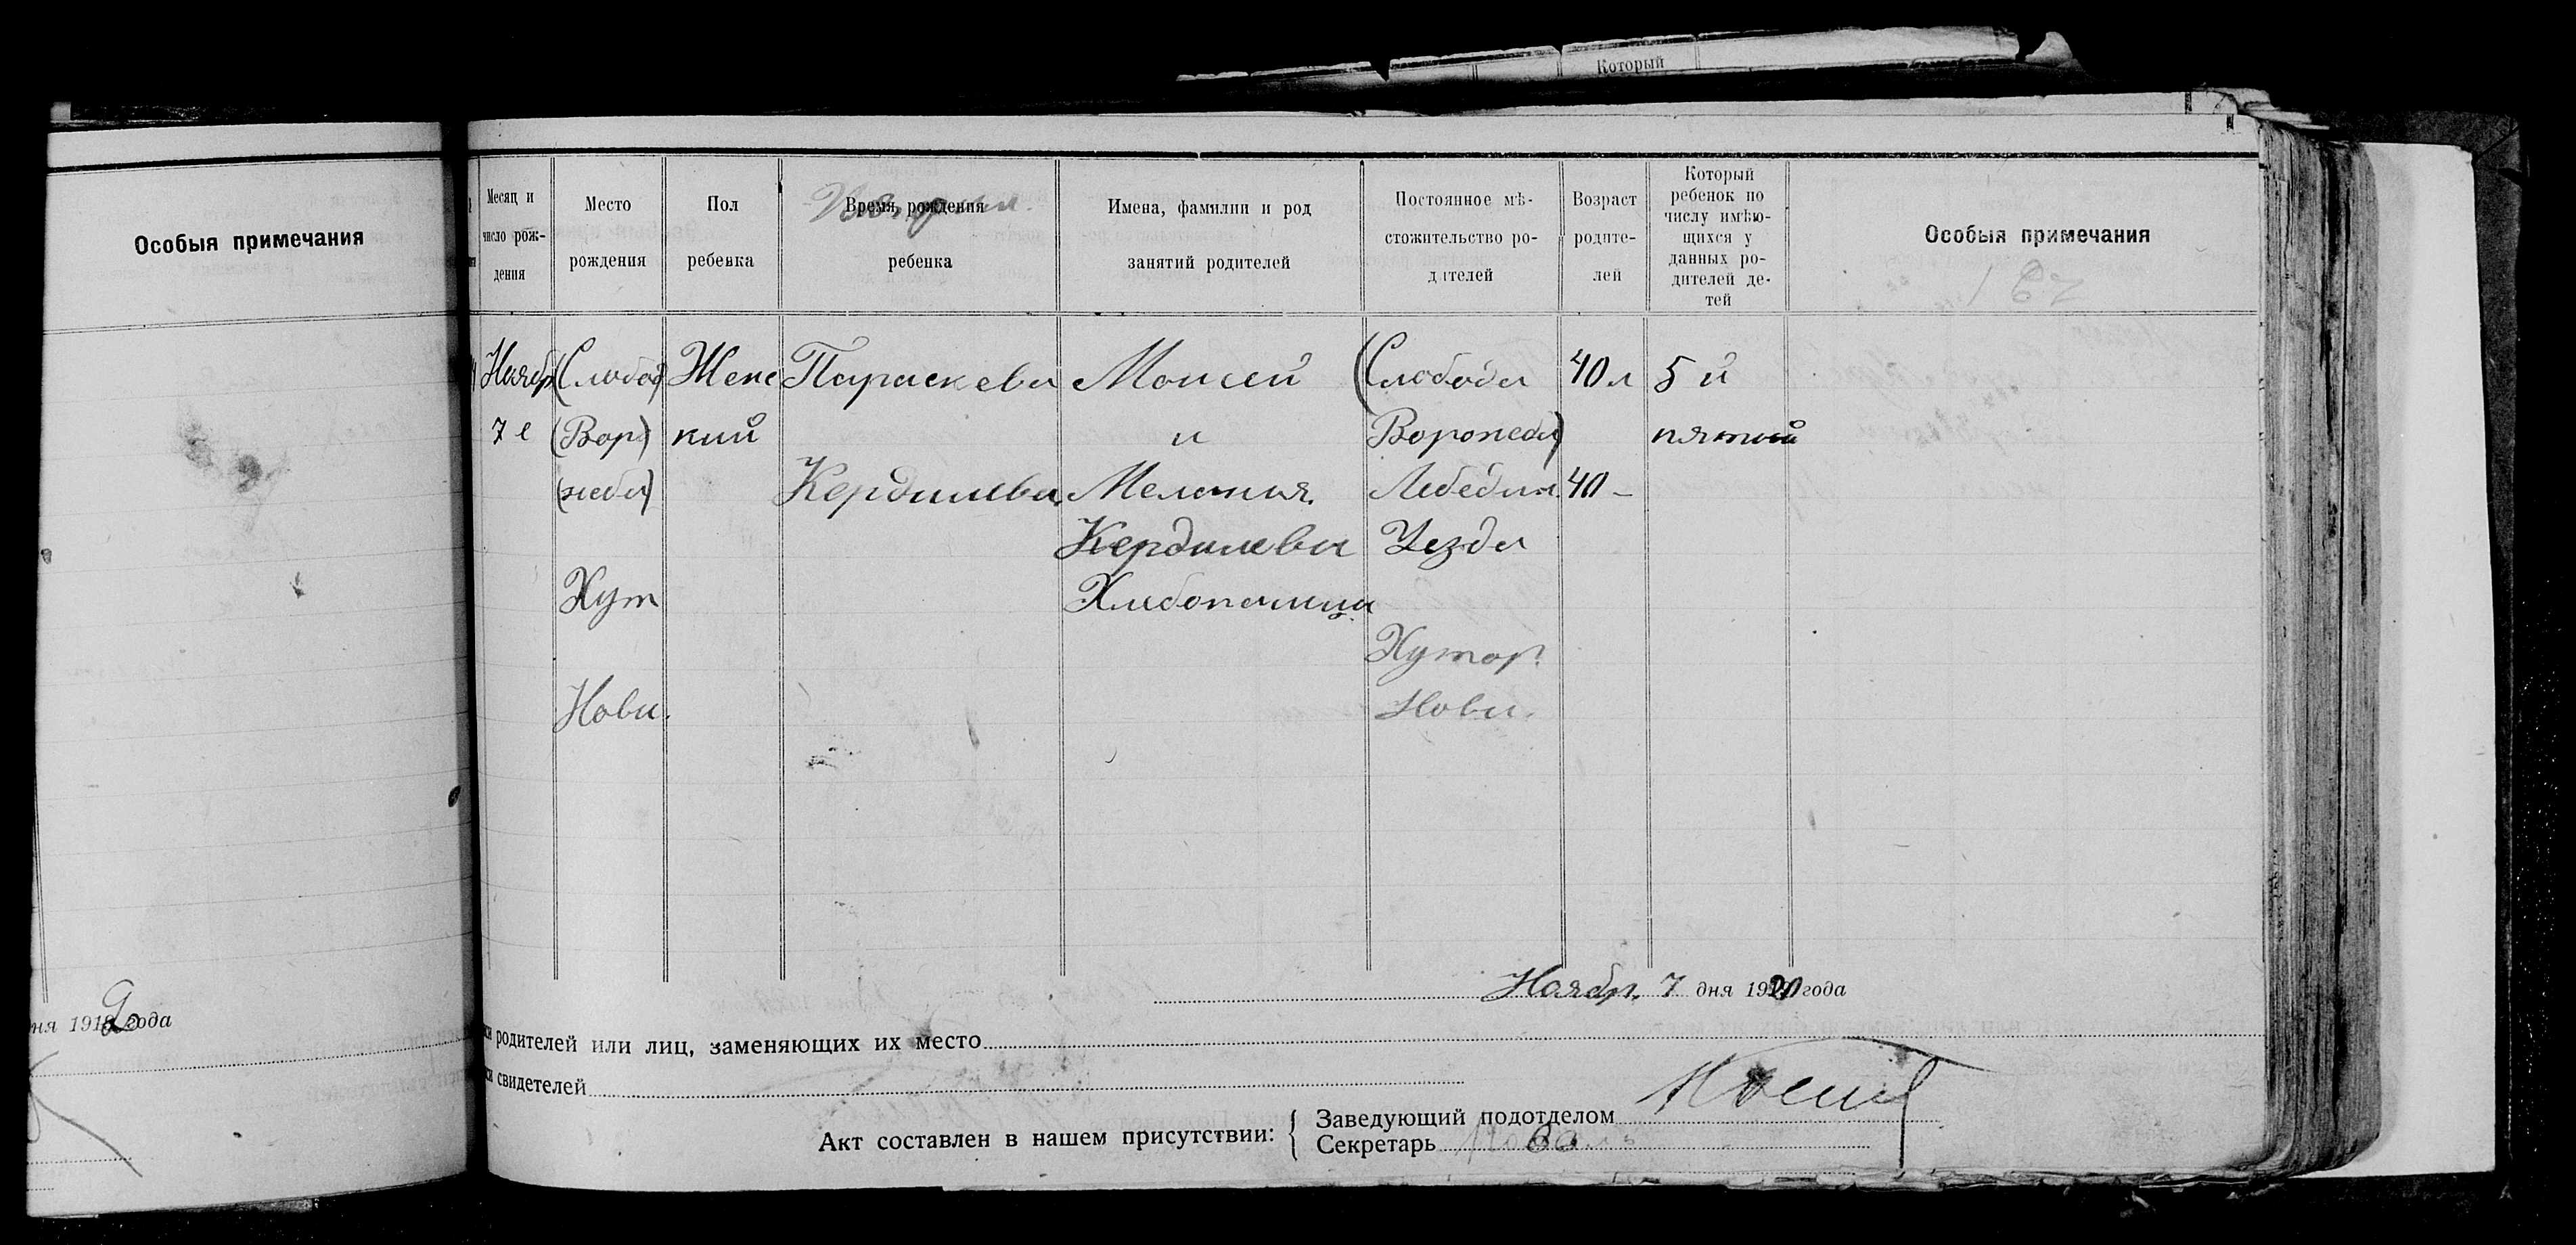 Который
Особыя примечания
Месяц и
число рож-
дения
Место
рождения
Пол
ребенка
Время рождения
ребенка
Имена, фамилии и род
занятий родителей
Постоянное мѣ-
стожительство ро-
дителей
Возраст
родите-
лей
Который
ребенок по
числу имѣю-
щихся у
данных ро-
дителей де-
тей
Особыя примечания
Ноябр
7 е
(Слобод)
(Вор)
(жеба)
Хут
Нови.
Женс
кий
Параскева
Моисей
и
Мелания
Хлебопашцы
(Слобода
Ворожеба)
Лебедин.
Уезда
Хутор.
Нови.
40 л
40 –
5 й
пятый
Ноябр. 7 дня 1920 года
ня 191 года
родителей или лиц, заменяющих их место
свидетелей
Акт составлен в нашем присутствии:
Заведующий подотделом
Секретарь